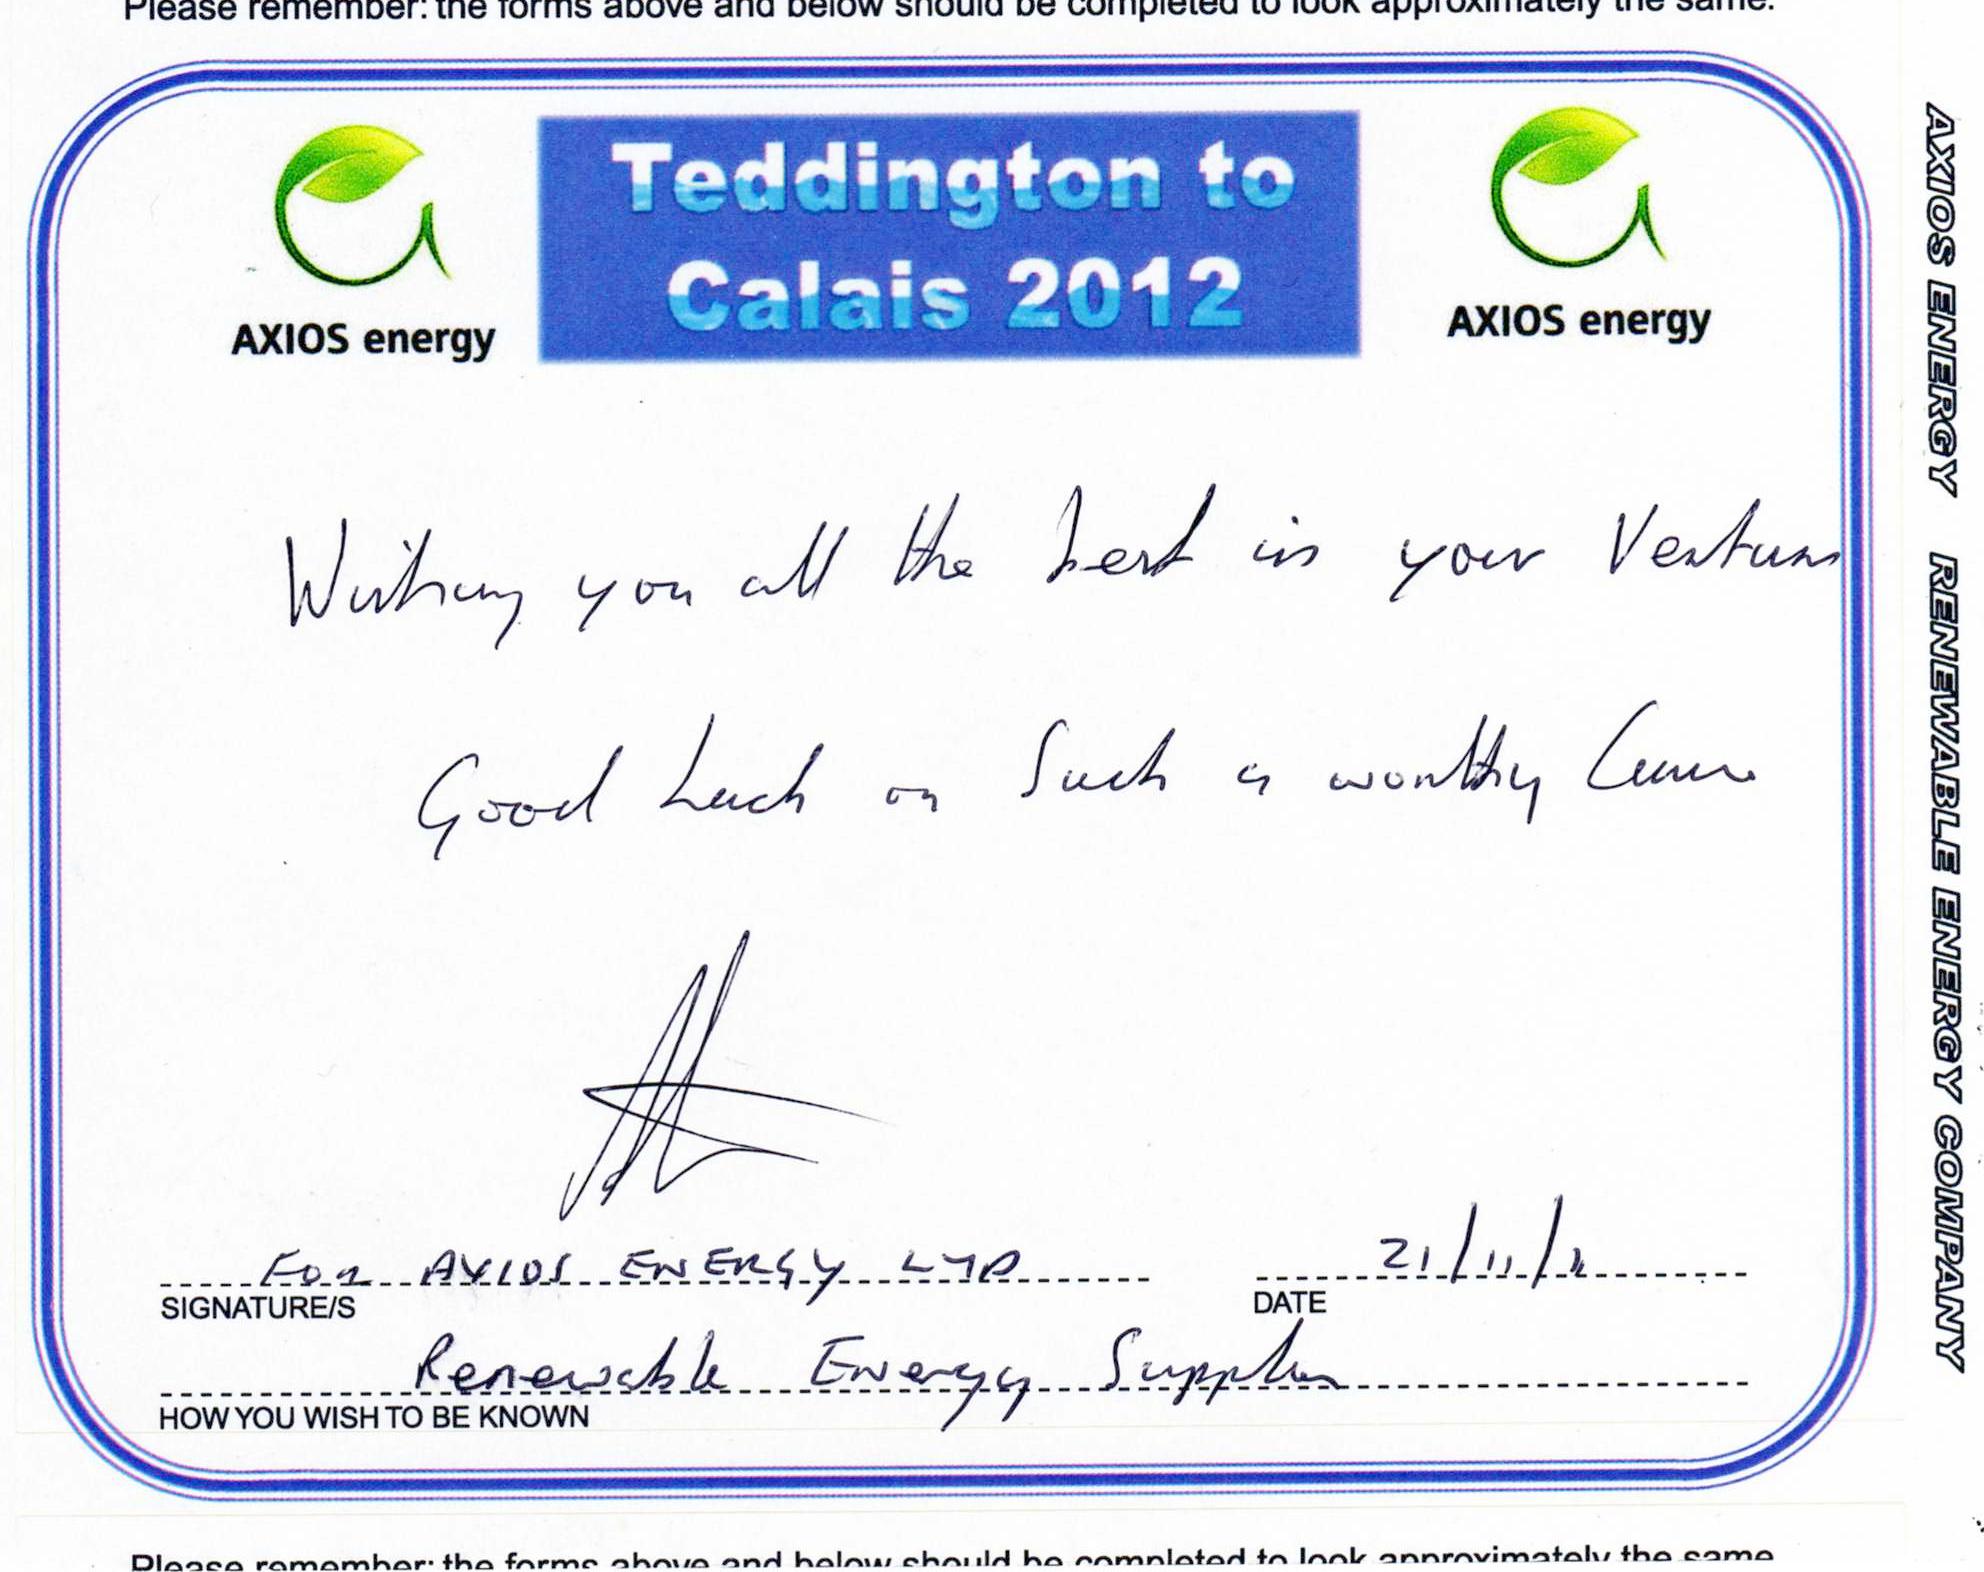 Please remember: the forms above and below should be completed to look approximately the same.
AXIOS energy
Teddington to
Calais 2012
AXIOS energy
Wishing you all the best in your Venture
Good Luck on Such a worthy Cause
FOR AXIOS ENERGY LTD
SIGNATURE/S
21/11/11
DATE
Renewable Energy Supplier
HOW YOU WISH TO BE KNOWN
Please remember: the forms above and below should be completed to look approximately the same
AXIOS ENERGY RENEWABLE ENERGY COMPANY